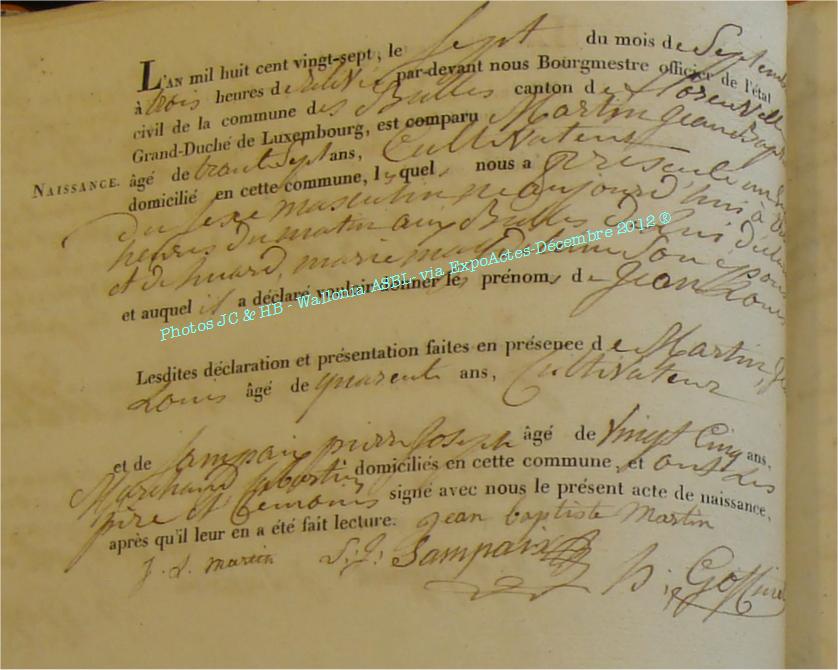 L'AN mil huit cent vingt-sept, le sept du mois de Septemb
à trois heures de relevé par-devant nous Bourgmestre officier de l'état
civil de la commune des Bulles canton de florenville
Grand-Duché de Luxembourg, est comparu Martin jean Bap
NAISSANCE.
âgé de trente Sept ans, Cultivateur
domicilié en cette commune, lequel nous a présenté un
Du sexe masculin né aujourd'hui à
heures du matin aux Bulles De lui
et de huard, marie son Epouse
et auquel il a déclaré vouloir donner les prénoms de Jean Louis
Photos JC & HB - Wallonia ASBL- via ExpoActes-Décembre 2012 ®
Lesdites déclaration et présentation faites en présence de Martin, J
Louis âgé de quarente ans, Cultivateur
et de Sampaix pierre Joseph âgé de Vingt Cinq ans,
Marchand domiciliés en cette commune, et ont Les
père et temoins signé avec nous le présent acte de naissance,
après qu'il leur en a été fait lecture. jean baptiste Martin
J. L. martin Sampaix